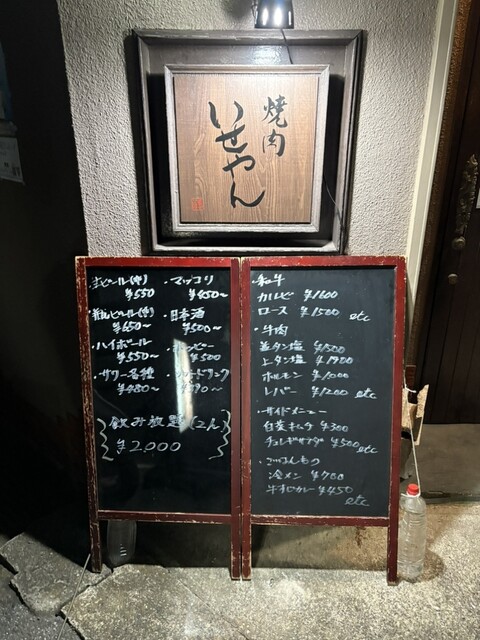 焼肉
いせやん
・生ビール(中)
¥550
・瓶ビール(中)
¥650〜
・ハイボール
¥550〜
・サワー各種
¥480〜
・マッコリ
¥450〜
・日本酒
¥500〜
・ホッピー
¥500
・ソフトドリンク
¥390〜
飲み放題(2h)
¥2,000
・和牛
カルビ ¥1600
ロース ¥1500 etc
・牛肉
並タン塩
上タン塩 ¥1900
ホルモン ¥1000
レバー ¥1200 etc
・サイドメニュー
白菜キムチ ¥300
チョレギサラダ ¥500 etc
・ごはんもの
冷メン ¥700
牛すじカレー ¥450
etc